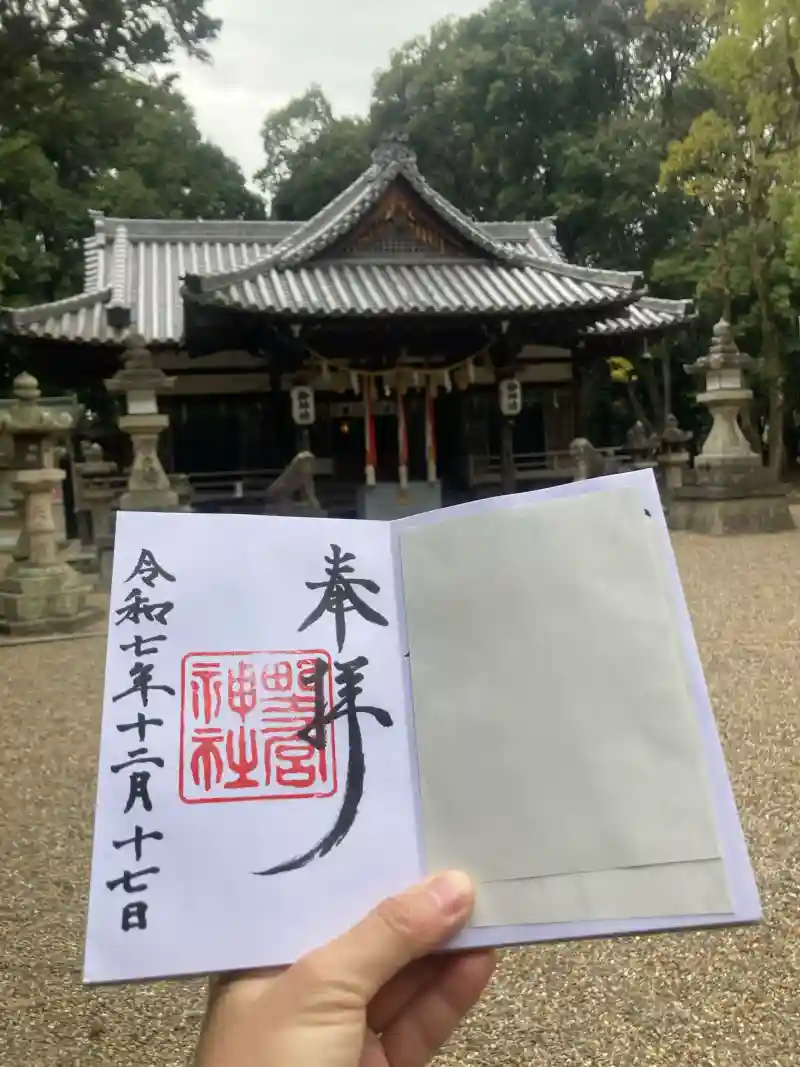 奉拝
野宮
神社
令和七年十二月十七日